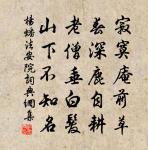 寂寞庵前草
春深鹿自耕
老僧垂白髮
山下不知名
楊蟠法安院詞典網集